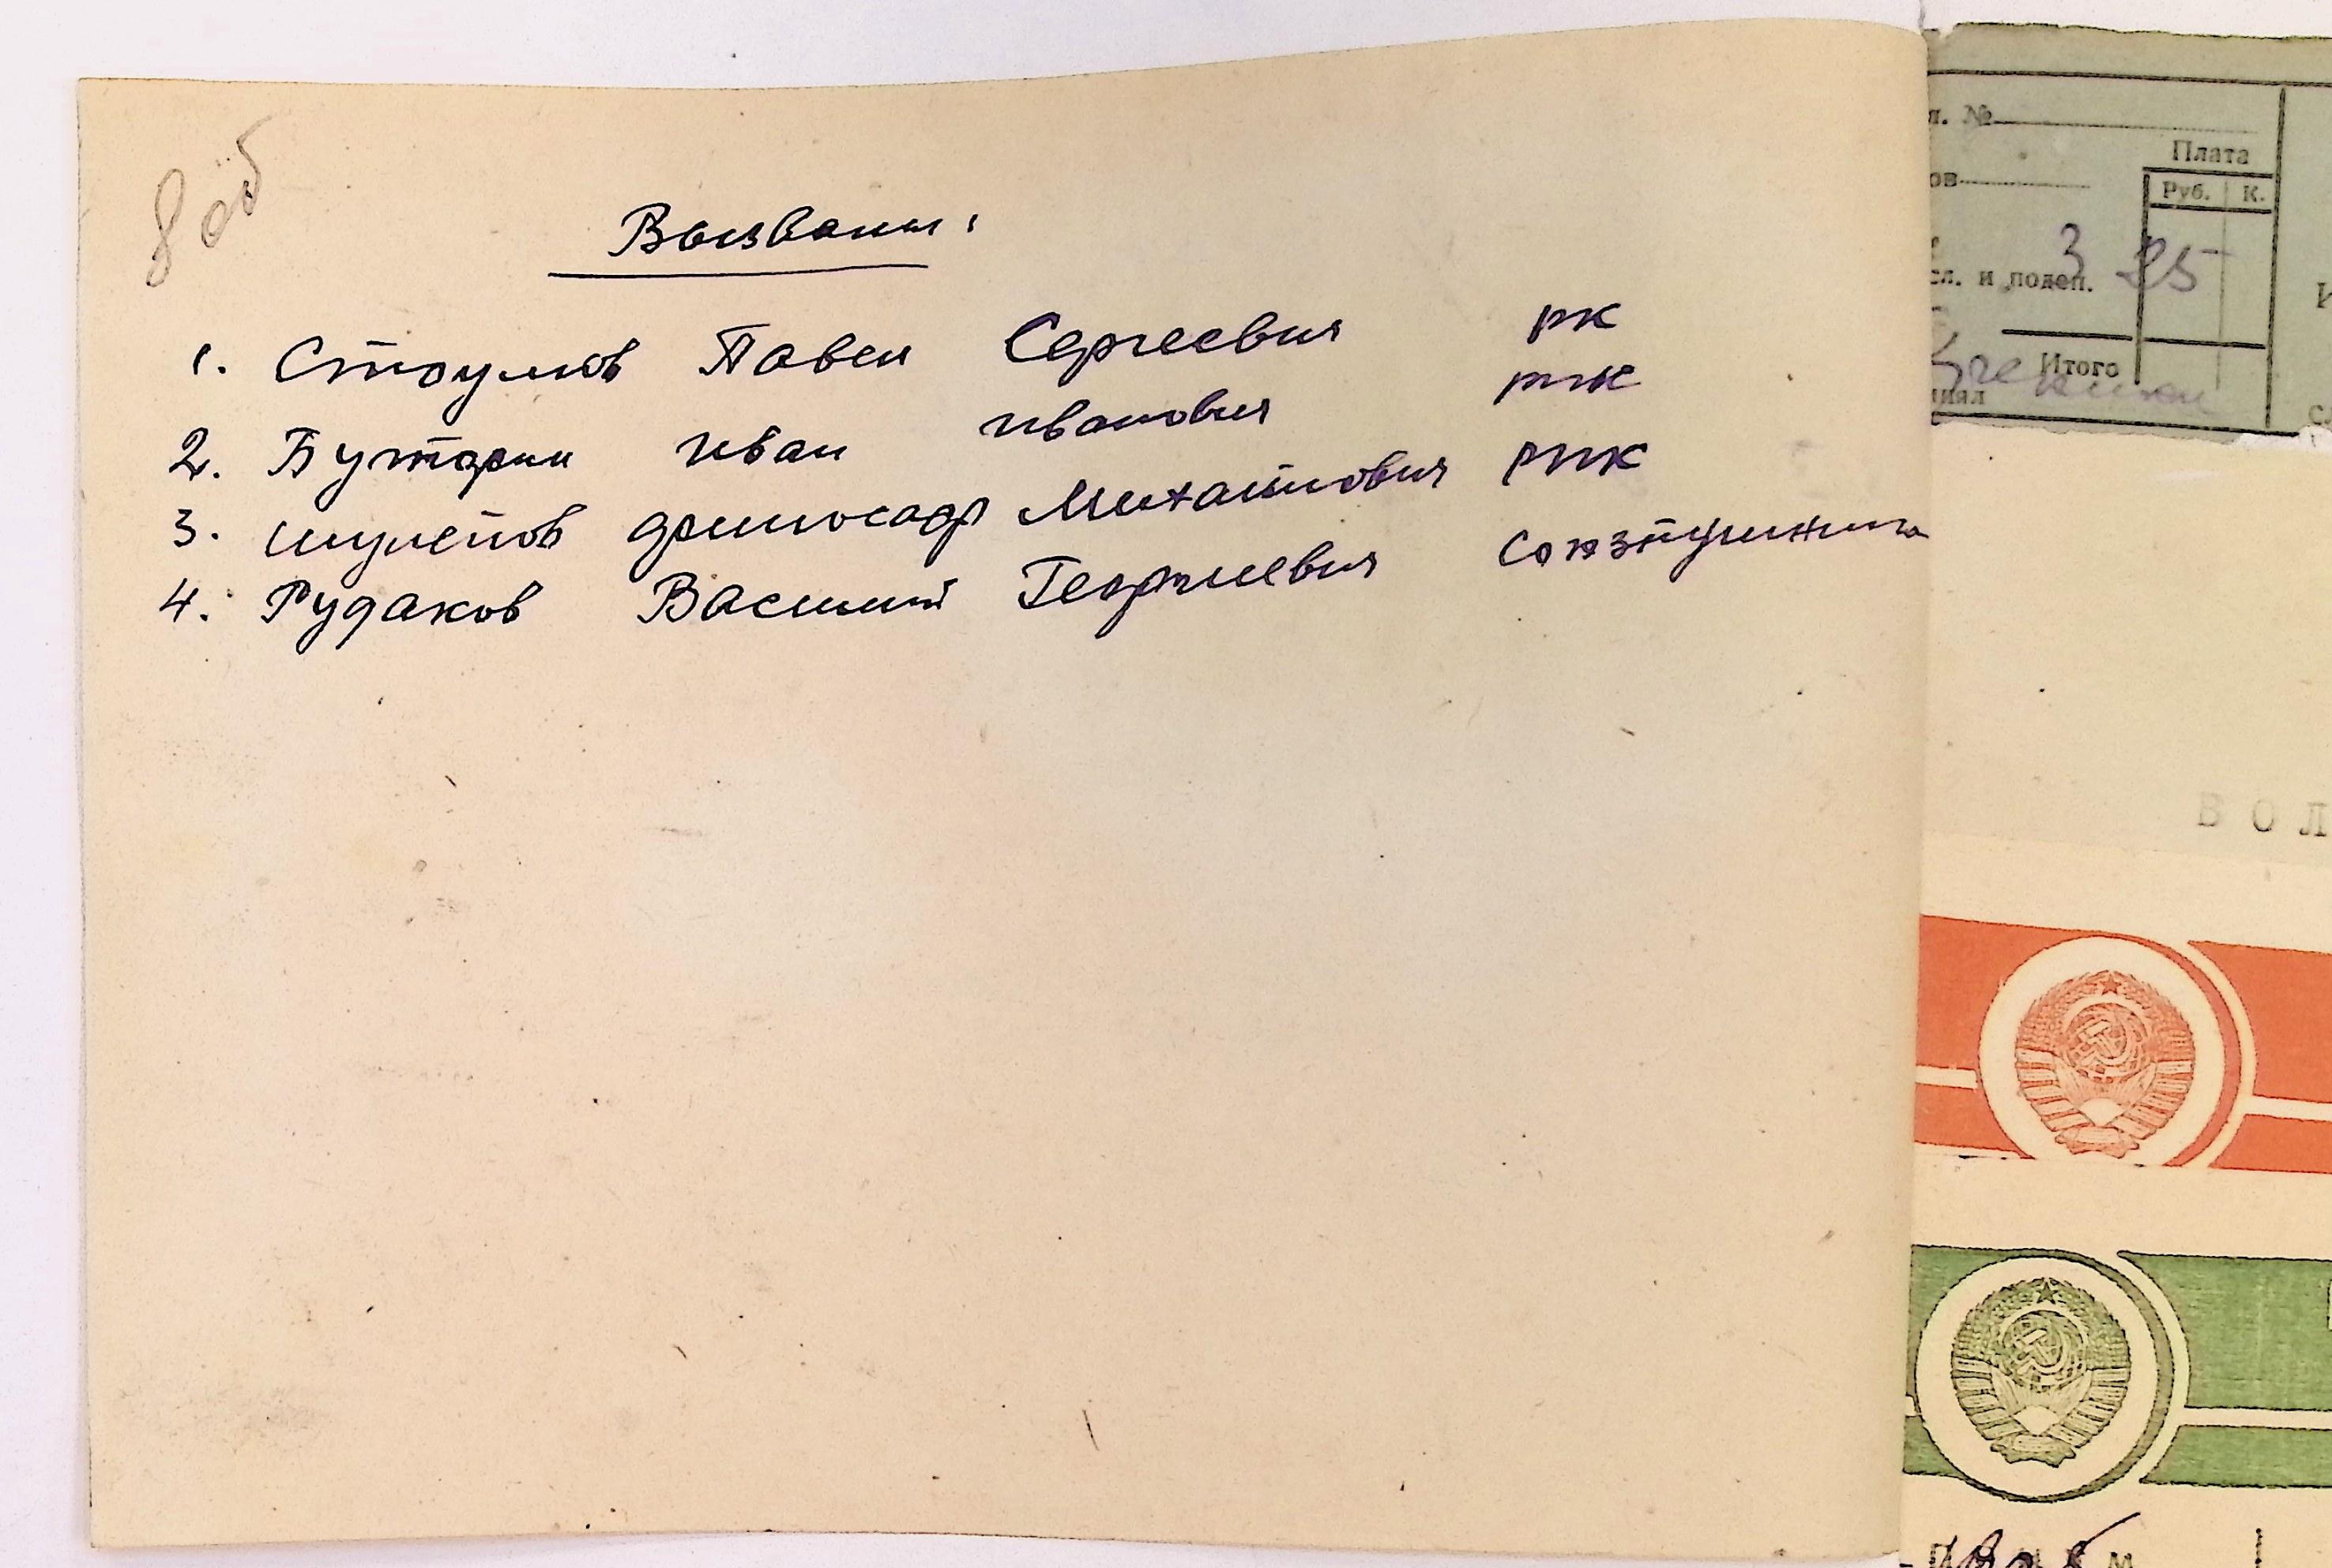 8 об
Вызваны:
1. Стоумов Павел Сергеевич рк
2. Буторин Иван Иванович рик
3. Шулепов Александр Михайлович рик
4. Рудаков Василий Георгиевич Союзпушнина
л. №
Плата
ов
Руб. К.
3 25
сл. и подеп.
Итого
инял
ВОЛ